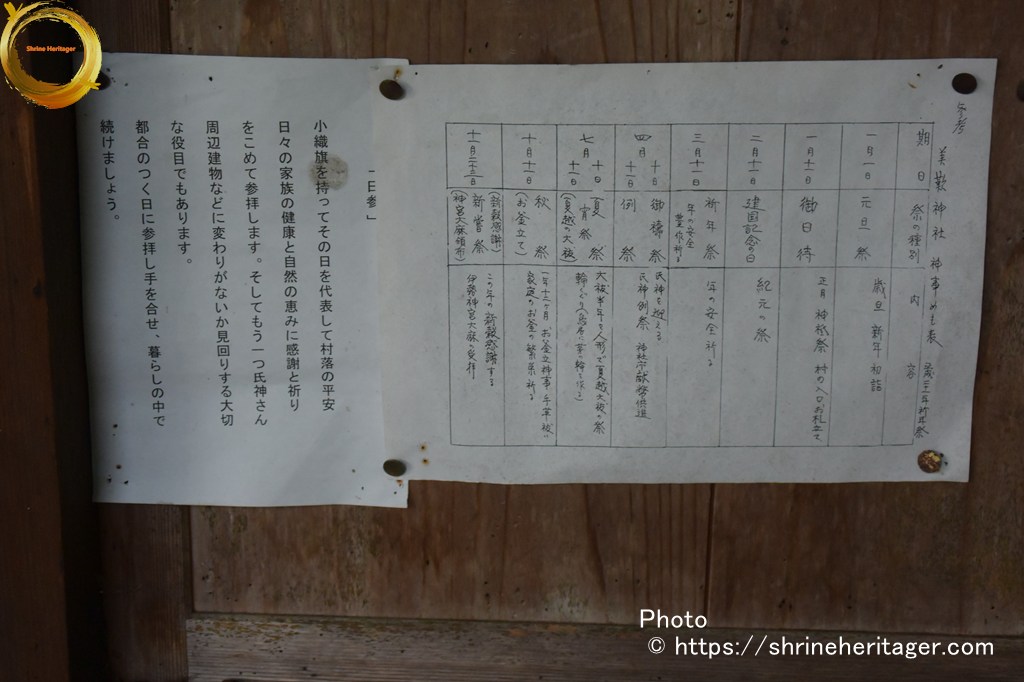 Shrine Heritager
参考
美歎神社 神事の主表
期日
祭の種別
内容
一月一日
元旦祭
歳旦 新年 初詣
一月十一日
御日待
正月 神祇祭 村の入口お札立て
二月十一日
建国記念の日
紀元の祭
三月十一日
祈年祭
年の安全
年の安全祈る
四月
十日
十一日
御構祭
例祭
氏神を迎える
氏神例祭 神社庁献幣供進
七月
十日
十一日
宵祭
夏祭
(夏越の大祓)
十月十一日
秋祭
(お釜立て)
十一月二十三日
(新穀感謝)
新嘗祭
(神宮大麻頒布)
この年の新穀感謝する
伊勢神宮大麻の受拝
「一日参」
小織旗を持ってその日を代表して村落の平安
日々の家族の健康と自然の恵みに感謝と祈り
をこめて参拝します。そしてもう一つ氏神さん
周辺建物などに変わりがないか見回りする大切
な役目でもあります。
都合のつく日に参拝し手を合せ、暮らしの中で
続けましょう。
Photo
© https://shrineheritager.com